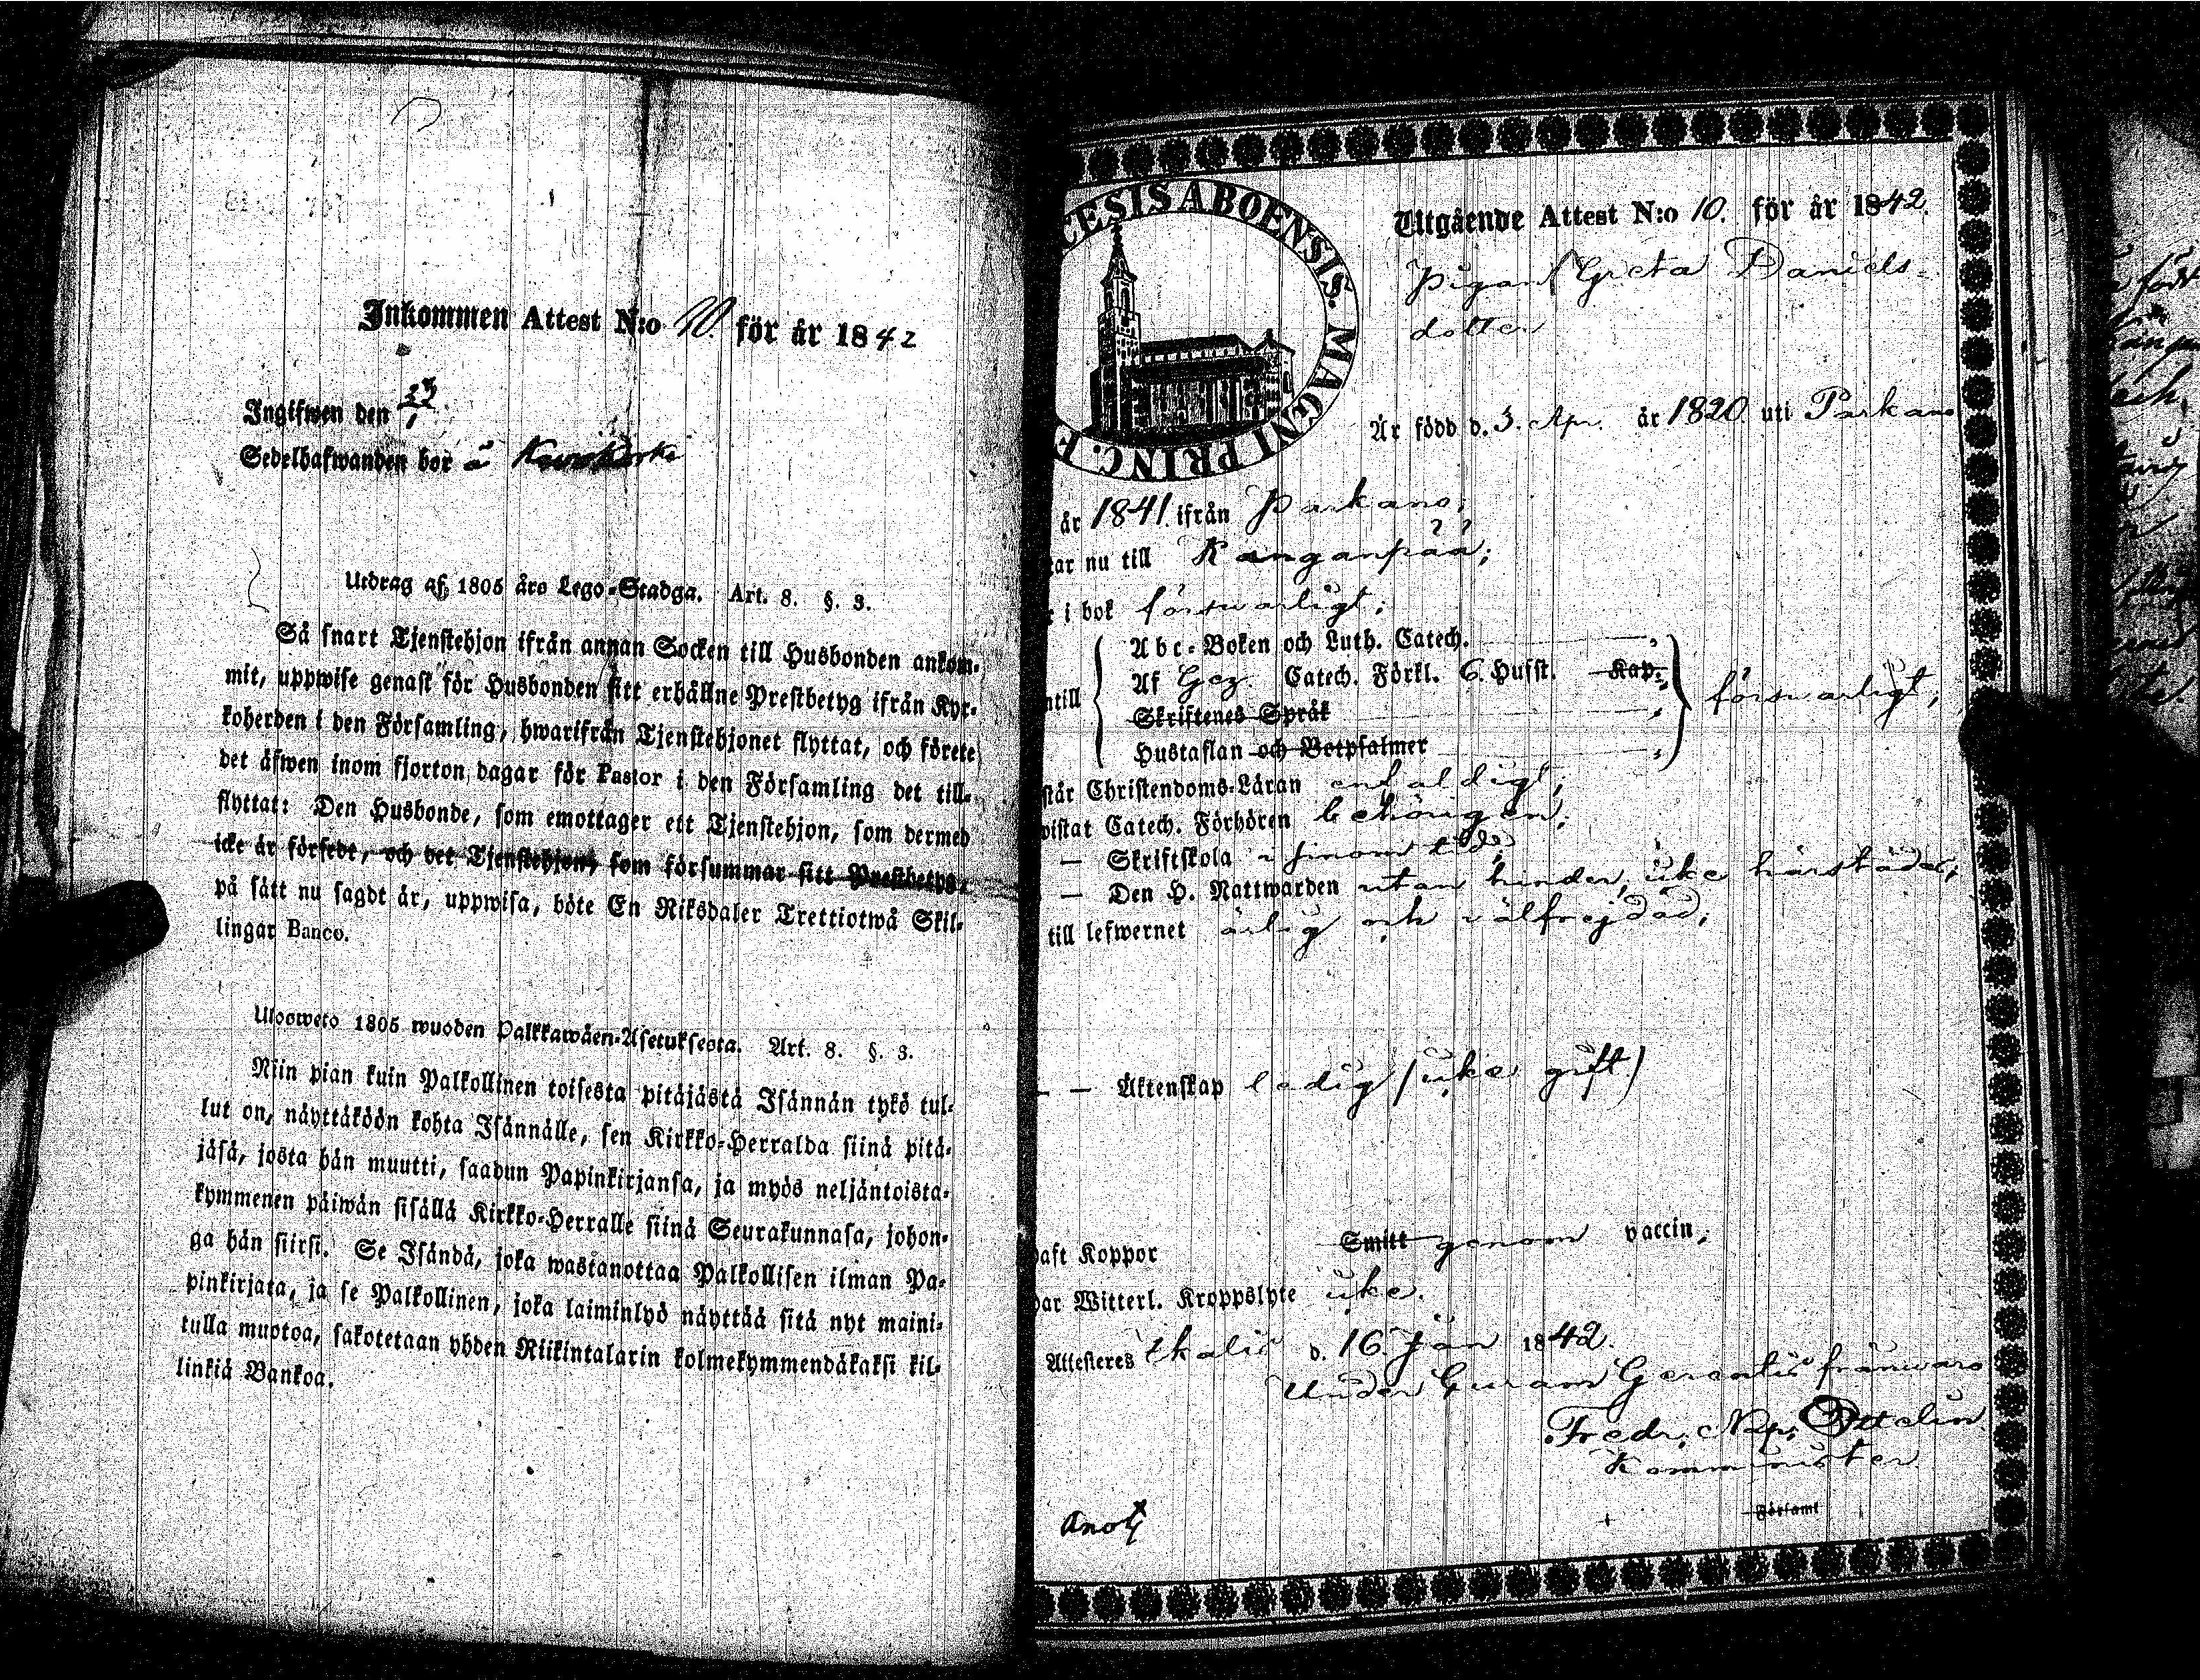 Inkommen Attest N:o för år 1842
Ingifwen den 23
Sedelhafwanden bor å
Utdrag af 1805 års Lego-Stadga. Art. 8. §. 3.
Så snart Tjenstehjon ifrån annan Socken till Husbonden ankom-
mit, uppwise genast för Husbonden sitt erhållne Prestbetyg ifrån Kyr-
koherden i den Församling, hwarifrån Tjenstehjonet flyttat, och förete
det äfwen inom fjorton dagar för Pastor i den Församling det till-
flyttat: Den Husbonde, som emottager ett Tjenstehjon, som dermed
icke är försedt, och det Tjenstehjon, som försummar sitt Prestbetyg,
på sätt nu sagdt är, uppwisa, böte En Riksdaler Trettiotwå Skil-
lingar Banco.
Ulosweto 1805 wuoden Palkkawäen-Asetuksesta. Art. 8. §. 3.
Niin pian kuin Palkollinen toisesta pitäjästä Isännän tykö tul-
lut on, näyttäköön kohta Isännälle, sen Kirkko-Herralda siinä pitä-
jäsä, josta hän muutti, saadun Papinkirjansa, ja myös neljäntoista-
kymmenen päiwän sisällä Kirkko-Herralle siinä Seurakunnasa, johon-
ga hän siirsi. Se Isändä, joka wastanottaa Palkollisen ilman Pa-
pinkirjata, ja se Palkollinen, joka laiminlyö näyttää sitä nyt maini-
tulla muotoa, sakotetaan yhden Riikintalarin kolmekymmendäkaksi kil-
linkiä Bankoa.
CESIS ABOENSIS. MAGNI PRINC. F
Utgående Attest N:o 10. för år 1842.
Pigan Greta Daniels-
dotter
Är född d. 3. Apr. år 1820. uti Parkano
år 1841. ifrån Parkano;
ar nu till Kanganpää;
r i bok försvarligt;
Abc-Boken och Luth. Catech.
ntill Af Gez. Catech. Förkl. 6. Husst. Kap. försvarligt;
Skriftenes Språk
Hustaflan och Botpsalmer
står Christendoms-Läran enfaldigt;
wistat Catech. Förhören behörigen;
— Skriftskola i sinom tid;
— Den H. Nattwarden utan hinder, icke härstädes;
till lefwernet ärlig och välfrejdad;
— Äktenskap ledig (icke gift)
haft Koppor Smitt genom vaccin;
har Witterl. Kroppslyte icke.
Attesteres Ikalis d. 16. Jan 1842.
Under Curam Gerentis frånvaro
Fredr. Nap. Ottelin
Komminister
Församl